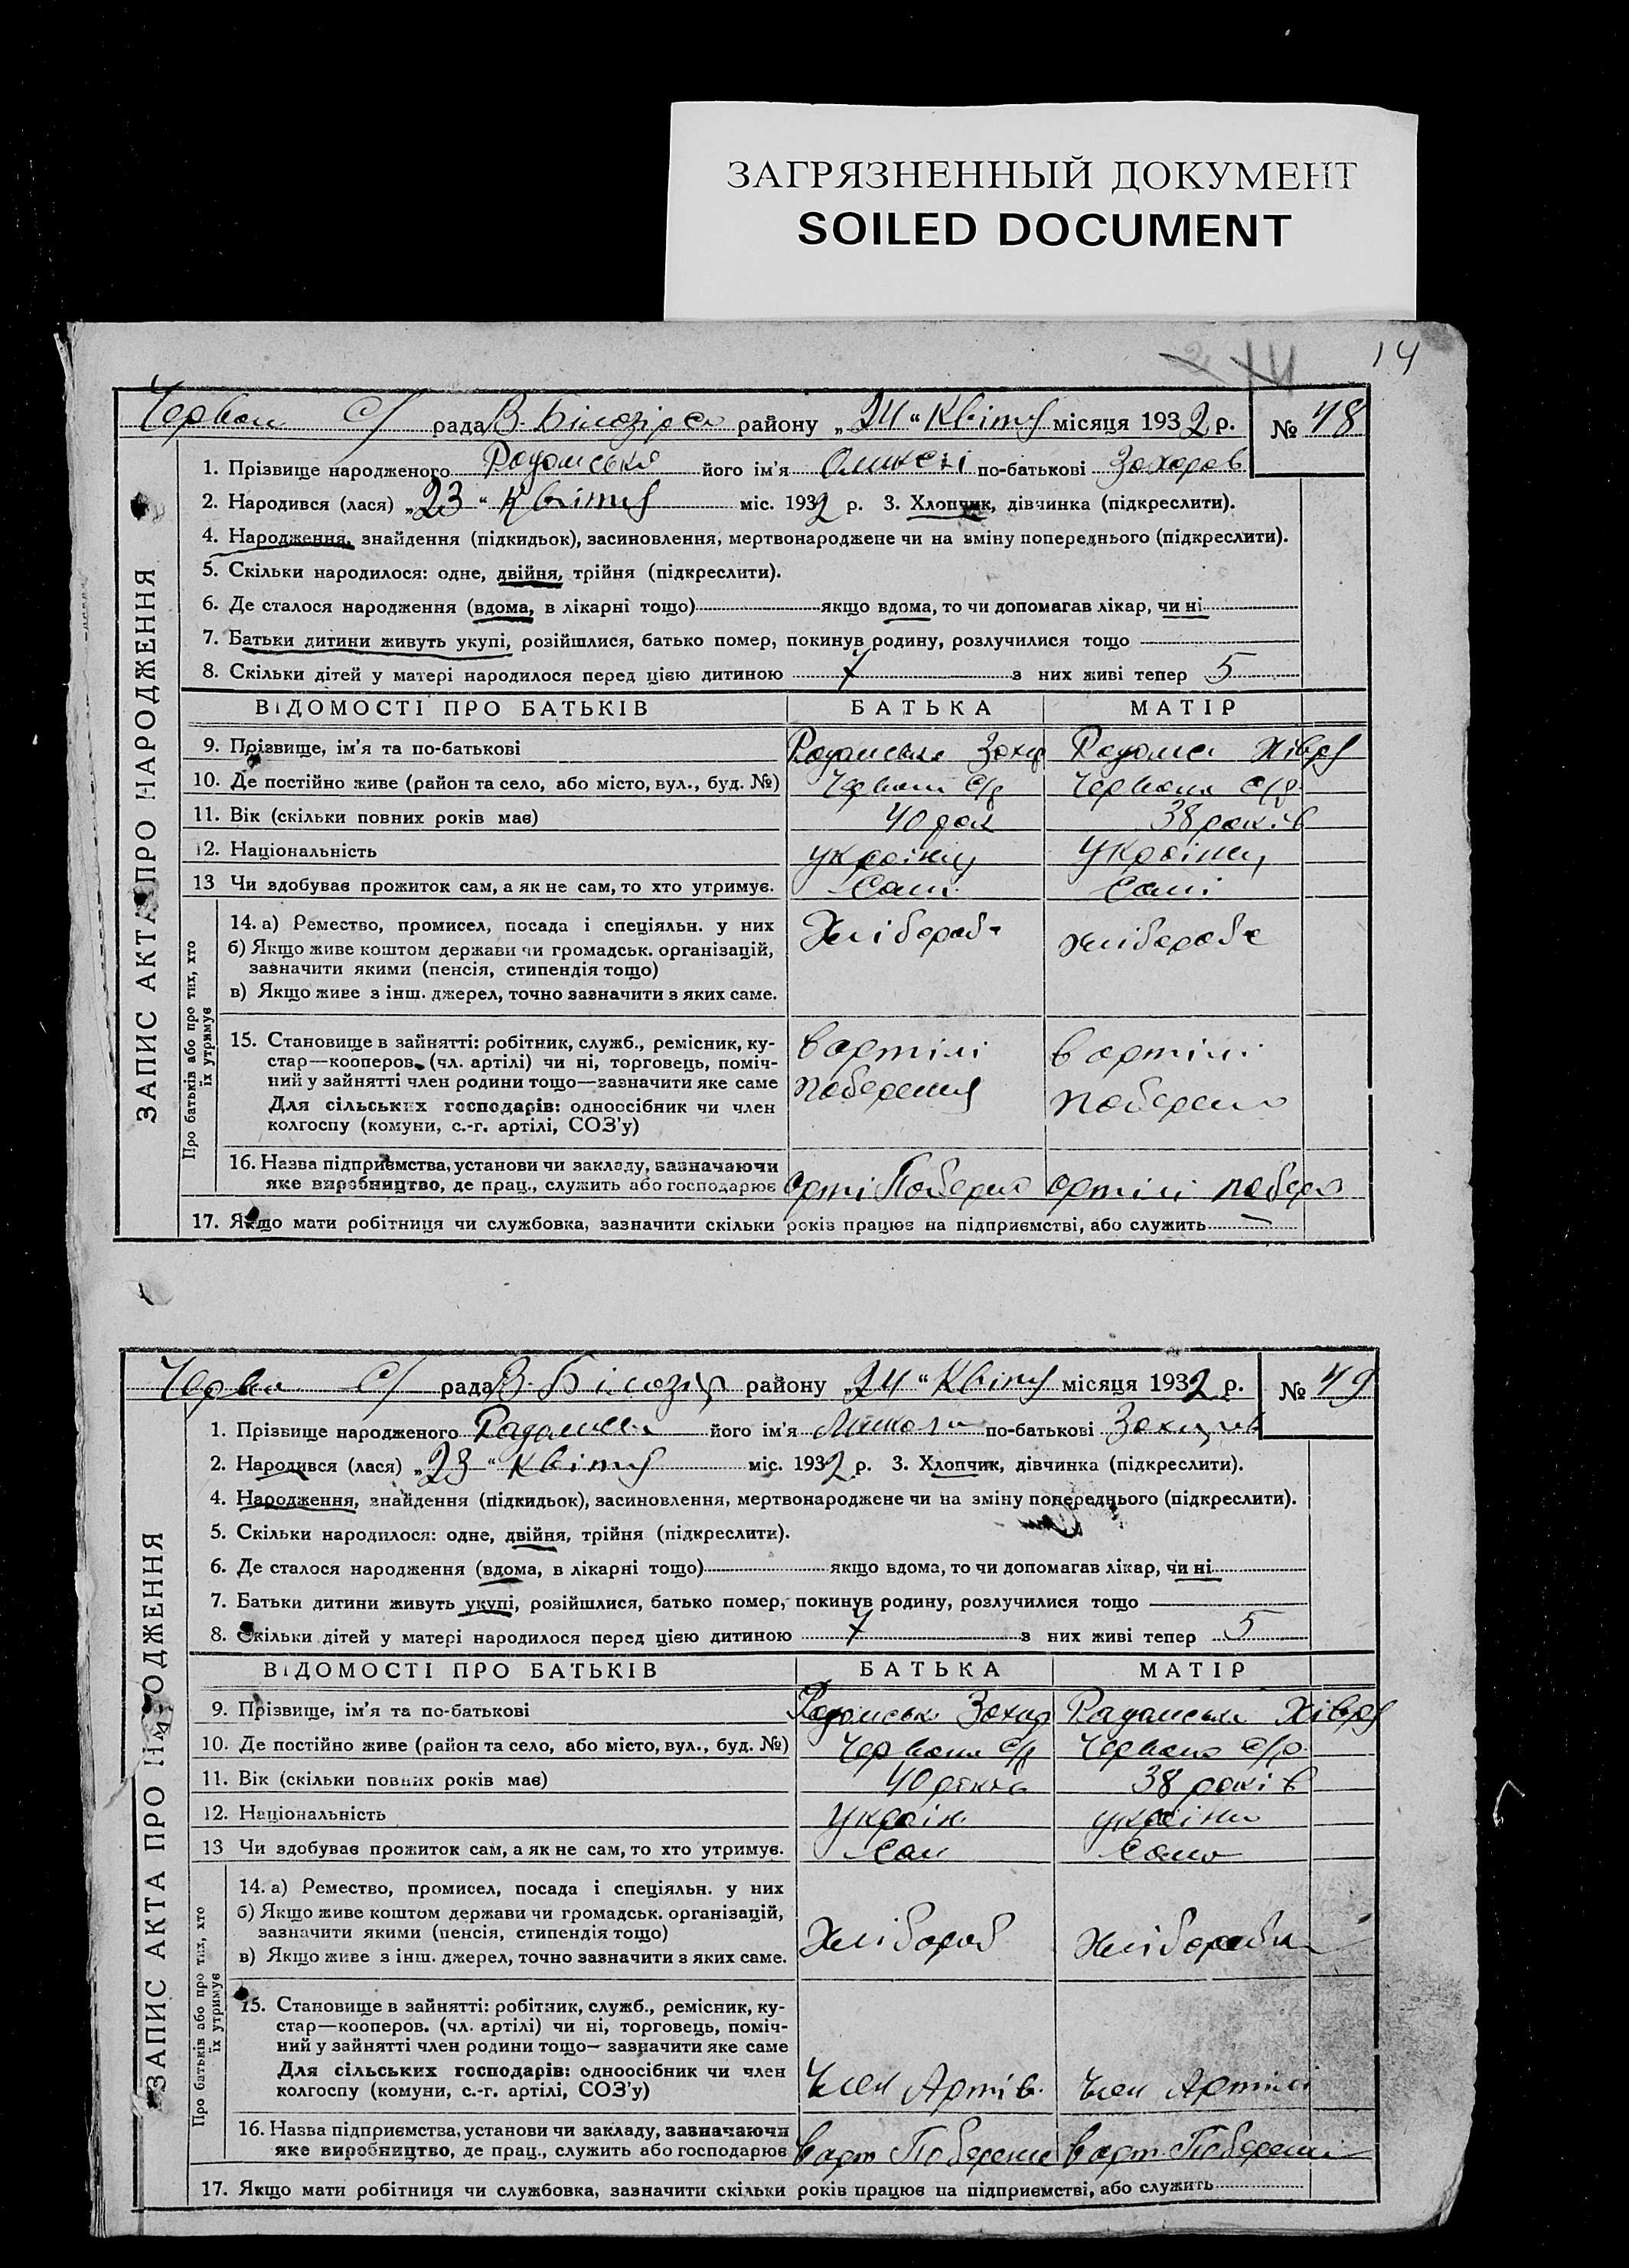 ЗАГРЯЗНЕННЫЙ ДОКУМЕНТ
SOILED DOCUMENT
14
С/ рада В. Білозірс району „24“ Квітня місяця 1932 р. № 48
ЗАПИС АКТА ПРО НАРОДЖЕННЯ
1. Прізвище народженого його ім'я по-батькові Захаров
2. Народився (лася) „23“ Квітня міс. 1932 р. 3. Хлопчик, дівчинка (підкреслити).
4. Народження, знайдення (підкидьок), засиновлення, мертвонароджене чи на зміну попереднього (підкреслити).
5. Скільки народилося: одне, двійня, трійня (підкреслити).
6. Де сталося народження (вдома, в лікарні тощо) якщо вдома, то чи допомагав лікар, чи ні
7. Батьки дитини живуть укупі, розійшлися, батько помер, покинув родину, розлучилися тощо
8. Скільки дітей у матері народилося перед цією дитиною 7 з них живі тепер 5
ВІДОМОСТІ ПРО БАТЬКІВ БАТЬКА МАТІР
9. Прізвище, ім'я та по-батькові Захар Хівря
10. Де постійно живе (район та село, або місто, вул., буд. №) с/р с/р
11. Вік (скільки повних років має) 40 рок 38 років
12. Національність україн україн
13 Чи здобуває прожиток сам, а як не сам, то хто утримує. Сам Сам
Про батьків або про тих, хто їх утримує
14. а) Ремество, промисел, посада і спеціяльн. у них Хлібороб Хлібороб
б) Якщо живе коштом держави чи громадськ. організацій,
зазначити якими (пенсія, стипендія тощо)
в) Якщо живе з інш. джерел, точно зазначити з яких саме.
15. Становище в зайнятті: робітник, служб., ремісник, ку-
стар—кооперов. (чл. артілі) чи ні, торговець, поміч- в артілі в артілі
ний у зайнятті член родини тощо—зазначити яке саме
Для сільських господарів: одноосібник чи член
колгоспу (комуни, с.-г. артілі, СОЗ'у)
16. Назва підприємства, установи чи закладу, зазначаючи
яке виробництво, де прац., служить або господарює арті артілі
17. Якщо мати робітниця чи службовка, зазначити скільки років працює на підприємстві, або служить
С/ рада В. Білозір району „24“ Квітня місяця 1932 р. № 49
ЗАПИС АКТА ПРО НАРОДЖЕННЯ
1. Прізвище народженого його ім'я Микола по-батькові
2. Народився (лася) „23“ Квітня міс. 1932 р. 3. Хлопчик, дівчинка (підкреслити).
4. Народження, знайдення (підкидьок), засиновлення, мертвонароджене чи на зміну попереднього (підкреслити).
5. Скільки народилося: одне, двійня, трійня (підкреслити).
6. Де сталося народження (вдома, в лікарні тощо) якщо вдома, то чи допомагав лікар, чи ні
7. Батьки дитини живуть укупі, розійшлися, батько помер, покинув родину, розлучилися тощо
8. Скільки дітей у матері народилося перед цією дитиною 7 з них живі тепер 5
ВІДОМОСТІ ПРО БАТЬКІВ БАТЬКА МАТІР
9. Прізвище, ім'я та по-батькові Захар Хівря
10. Де постійно живе (район та село, або місто, вул., буд. №) с/р с/р
11. Вік (скільки повних років має) 40 років 38 років
12. Національність україн україн
13 Чи здобуває прожиток сам, а як не сам, то хто утримує. Сам Сама
Про батьків або про тих, хто їх утримує
14. а) Ремество, промисел, посада і спеціяльн. у них
б) Якщо живе коштом держави чи громадськ. організацій,
зазначити якими (пенсія, стипендія тощо) Хлібороб Хлібороб
в) Якщо живе з інш. джерел, точно зазначити з яких саме.
15. Становище в зайнятті: робітник, служб., ремісник, ку-
стар—кооперов. (чл. артілі) чи ні, торговець, поміч-
ний у зайнятті член родини тощо—зазначити яке саме
Для сільських господарів: одноосібник чи член
колгоспу (комуни, с.-г. артілі, СОЗ'у) Член Член Артілі
16. Назва підприємства, установи чи закладу, зазначаючи
яке виробництво, де прац., служить або господарює в арт в арт.
17. Якщо мати робітниця чи службовка, зазначити скільки років працює на підприємстві, або служить